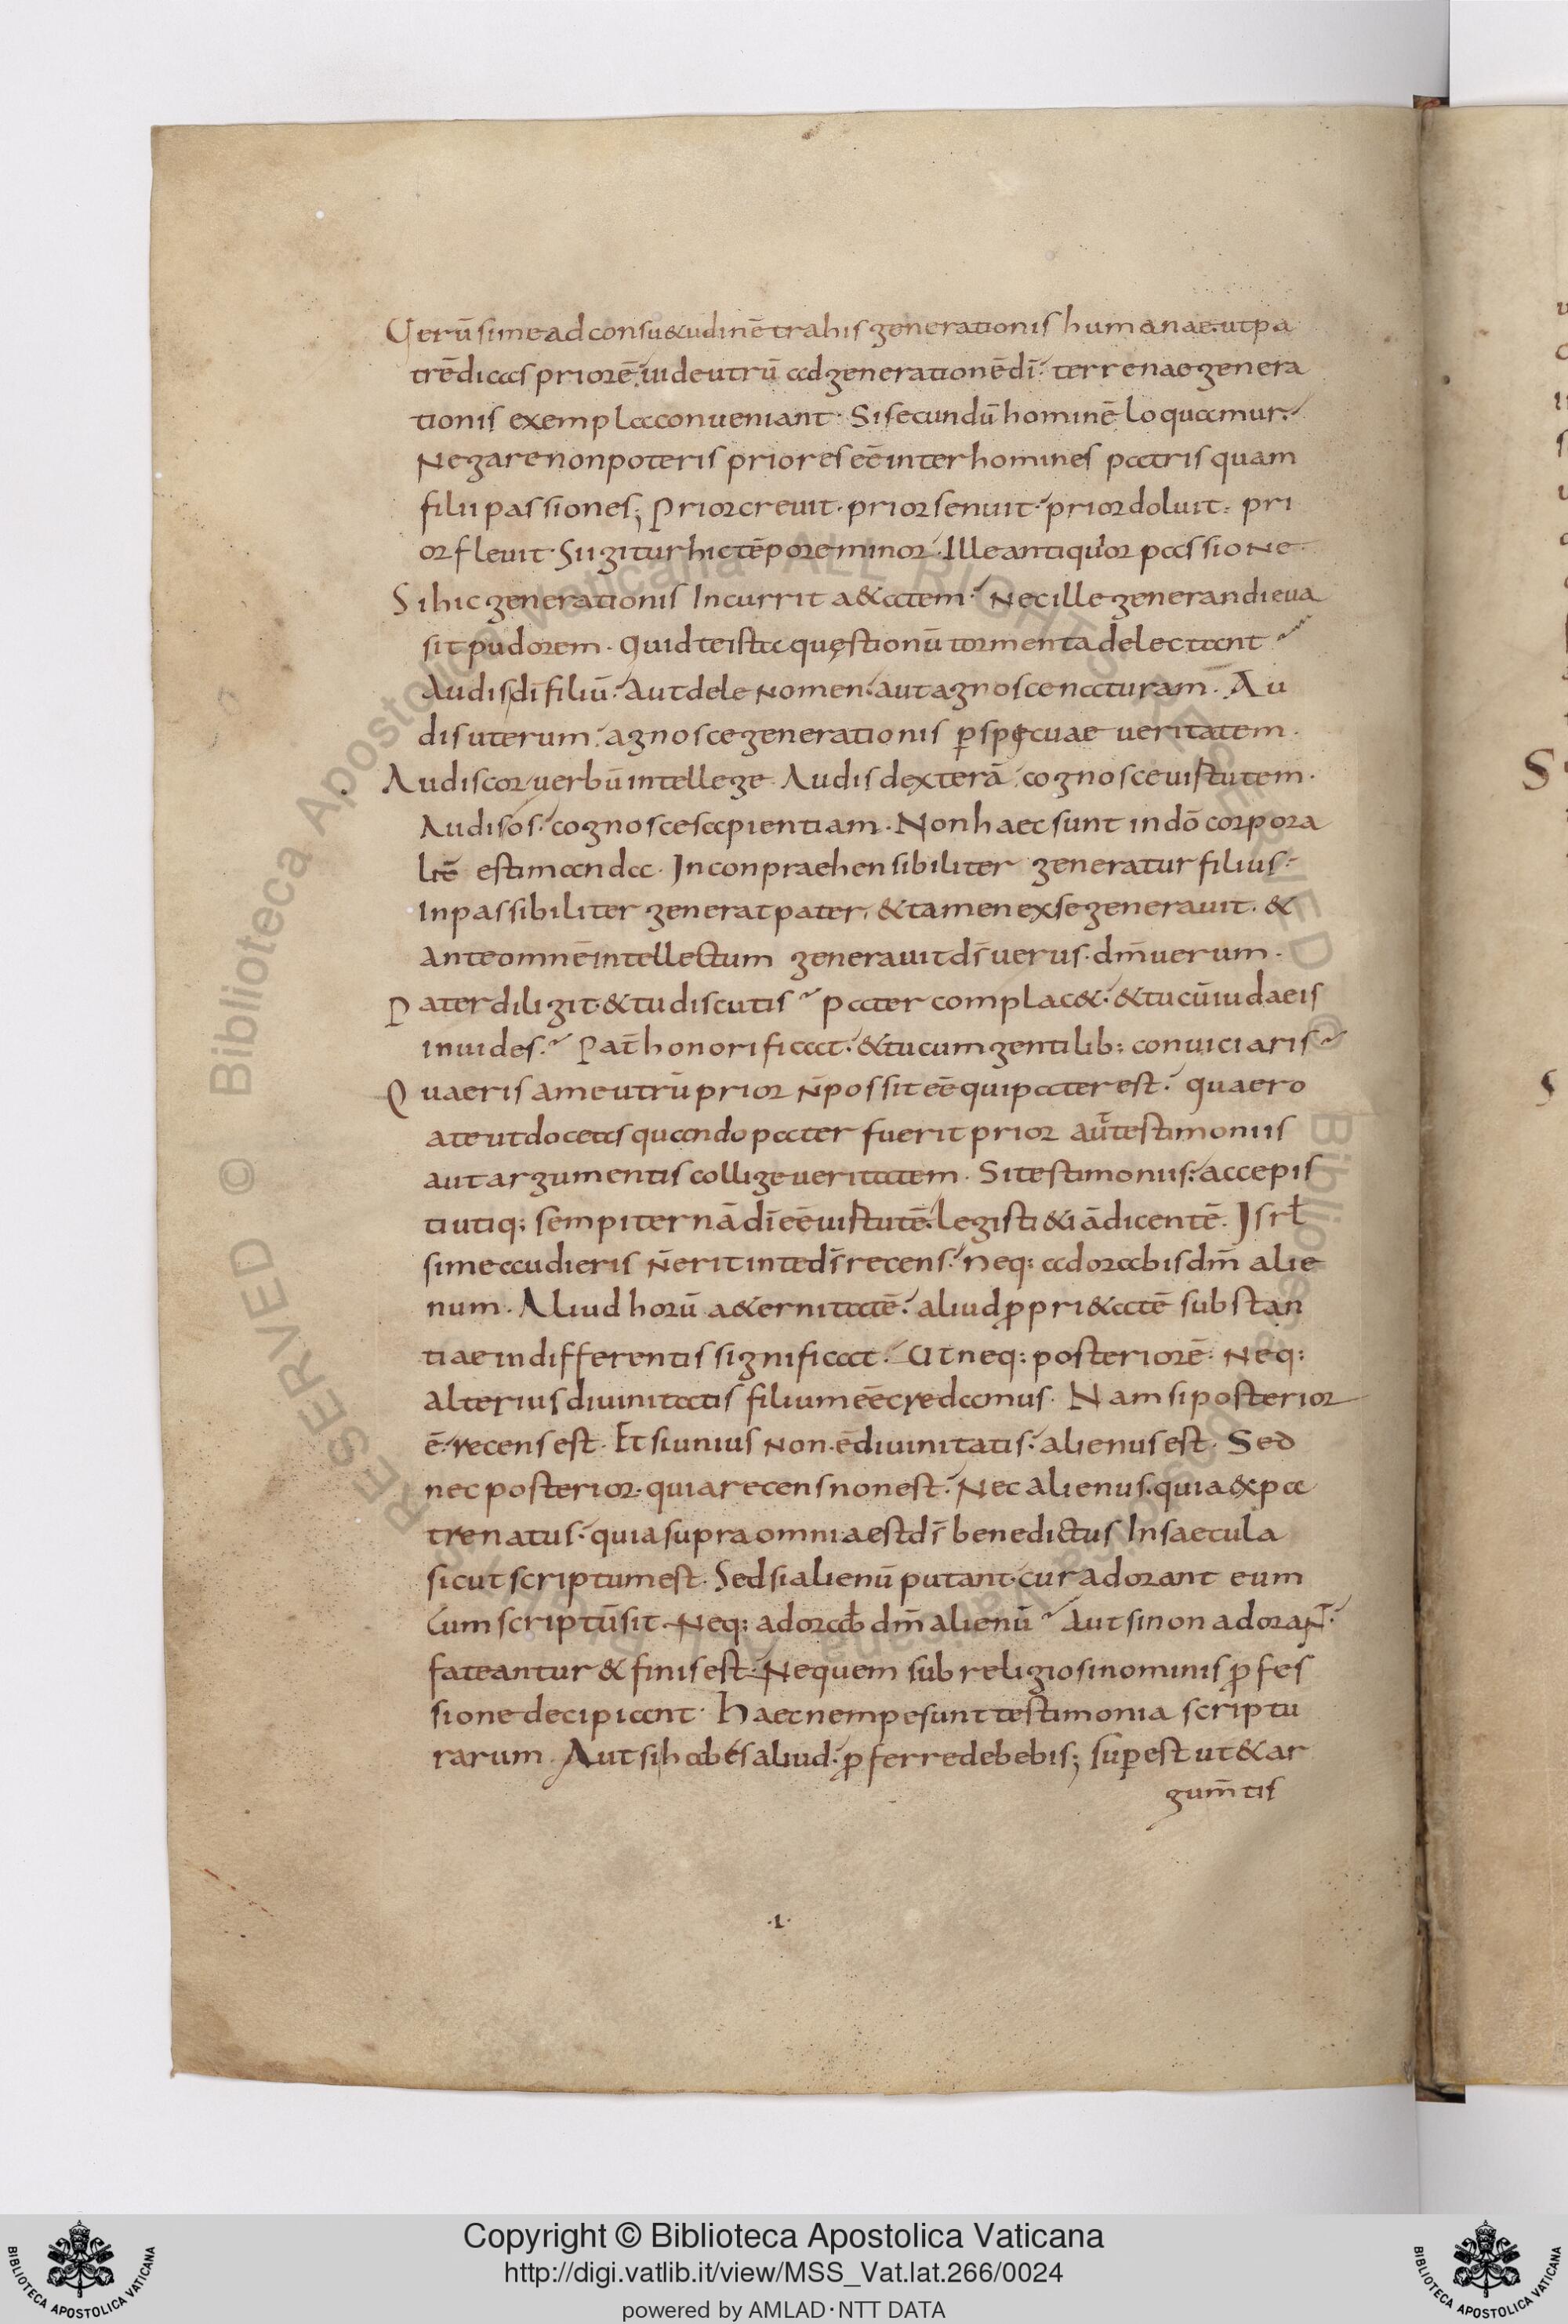 Uerū si me ad consu&udinē trahis generationis humanae. ut pa
trē dicas priorē. uide utrū ad generationē dī. terrenae genera
tionis exempla conueniant. Si secundū hominē loquamur.
Negare non poteris priores eē inter homines patris quam
filii passiones; Prior creuit. prior senuit. prior doluit. pri
or fleuit. Si igitur hic tēpore minor. Ille antiquior passione
Si hic generationis Incurrit a&atem. Nec ille generandi eua
sit pudorem. Quid te ista quęstionū tormenta delectant
Audis dī filiū. Aut dele nomen. aut agnosce naturam. Au
dis uterum. agnosce generationis pspęcuae ueritatem.
Audis cor. uerbū intellege. Audis dexterā. cognosce uirtutem.
Audis os. cognosce sapientiam. Non haec sunt in dō corpora
litē estimanda. Inconpraehensibiliter generatur filius.
Inpassibiliter generat pater. & tamen ex se generauit. &
ante omnē intellectum generauit ds̄ uerus. dm̄ uerum.
Pater diligit. & tu discutis Pater complac&. & tu cū iudaeis
inuides. Pat̄ honorificat. & tu cum gentilib: conuiciaris
Quaeris a me utrū prior n̄ possit eē qui pater est. quaero
a te ut doceas quando pater fuerit prior aūt testimoniis
aut argumentis collige ueritatem. Si testimoniis. accepis
ti utiq: sempiternā dī eē uirtutē. legisti &iā dicentē. Isrl̄
si me audieris n̄ erit in te ds̄ recens. neq: adorabis dm̄ alie
num. Aliud horū a&ernitatē. aliud ppri&atē substan
tiae indifferentis significat. Ut neq: posteriorē. Neq:
alterius diuinitatis filium eē credamus. Nam si posterior
ē. recens est. Et si unius non ē diuinitatis. alienus est. Sed
nec posterior. quia recens non est. Nec alienus. quia ex pa
tre natus. quia supra omnia est ds̄ benedictus In saecula
sicut scriptum est. Sed si alienū putant. cur adorant eum
Cum scriptū sit. Neq: adorab̄ dm̄ alienū Aut si non adoraN̄.
fateantur & finis est. Ne quem sub religiosi nominis pfes
sione decipiant. Haec nempe sunt testimonia scriptu
rarum. Aut si habes aliud. pferre debebis; supest ut & ar
gum̄tis
.1.
RESERVED © Biblioteca Apostolica Vaticana ALL RIGHTS RESERVED © Biblioteca Apostolica Vaticana ALL RIGHTS
Copyright © Biblioteca Apostolica Vaticana
http://digi.vatlib.it/view/MSS_Vat.lat.266/0024
powered by AMLAD·NTT DATA
BIBLIOTECA APOSTOLICA VATICANA
BIBLIOTECA APOSTOLICA VATICANA